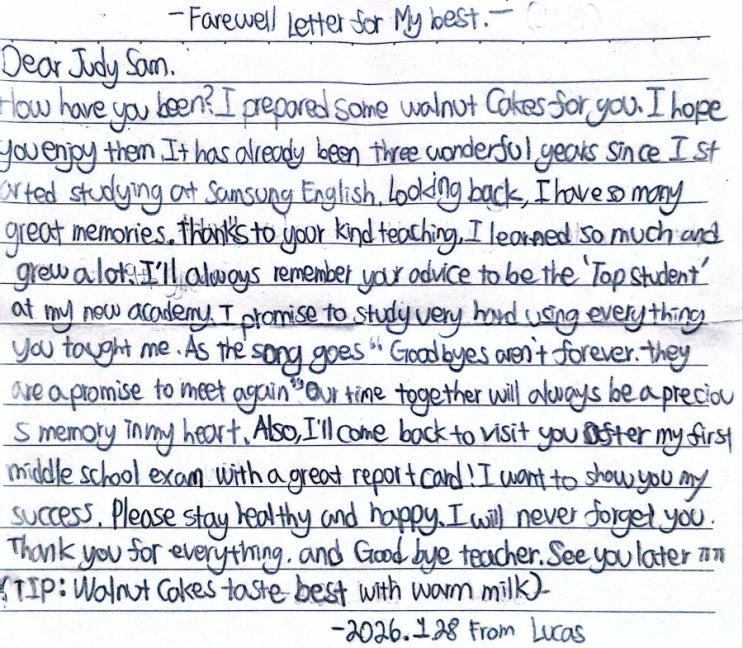 -Farewell Letter for My best.-
Dear Judy Sam.
How have you been? I prepared some walnut Cakes for you. I hope
you enjoy them. It has already been three wonderful years since I st
arted studying at Samsung English. Looking back, I have so many
great memories. Thanks to your kind teaching, I learned so much and
grew a lot. I'll always remember your advice to be the 'Top student'
at my new academy. I promise to study very hard using everything
you taught me. As the song goes " Goodbyes aren't forever. they
are a promise to meet again" Our time together will always be a preciou
s memory in my heart. Also, I'll come back to visit you after my first
middle school exam with a great report card! I want to show you my
success. Please stay healthy and happy. I will never forget you.
Thank you for everything. and Good bye teacher. See you later ㅠㅠ
(TIP: Walnut Cakes taste best with warm milk)-
-2026.1.28 From Lucas